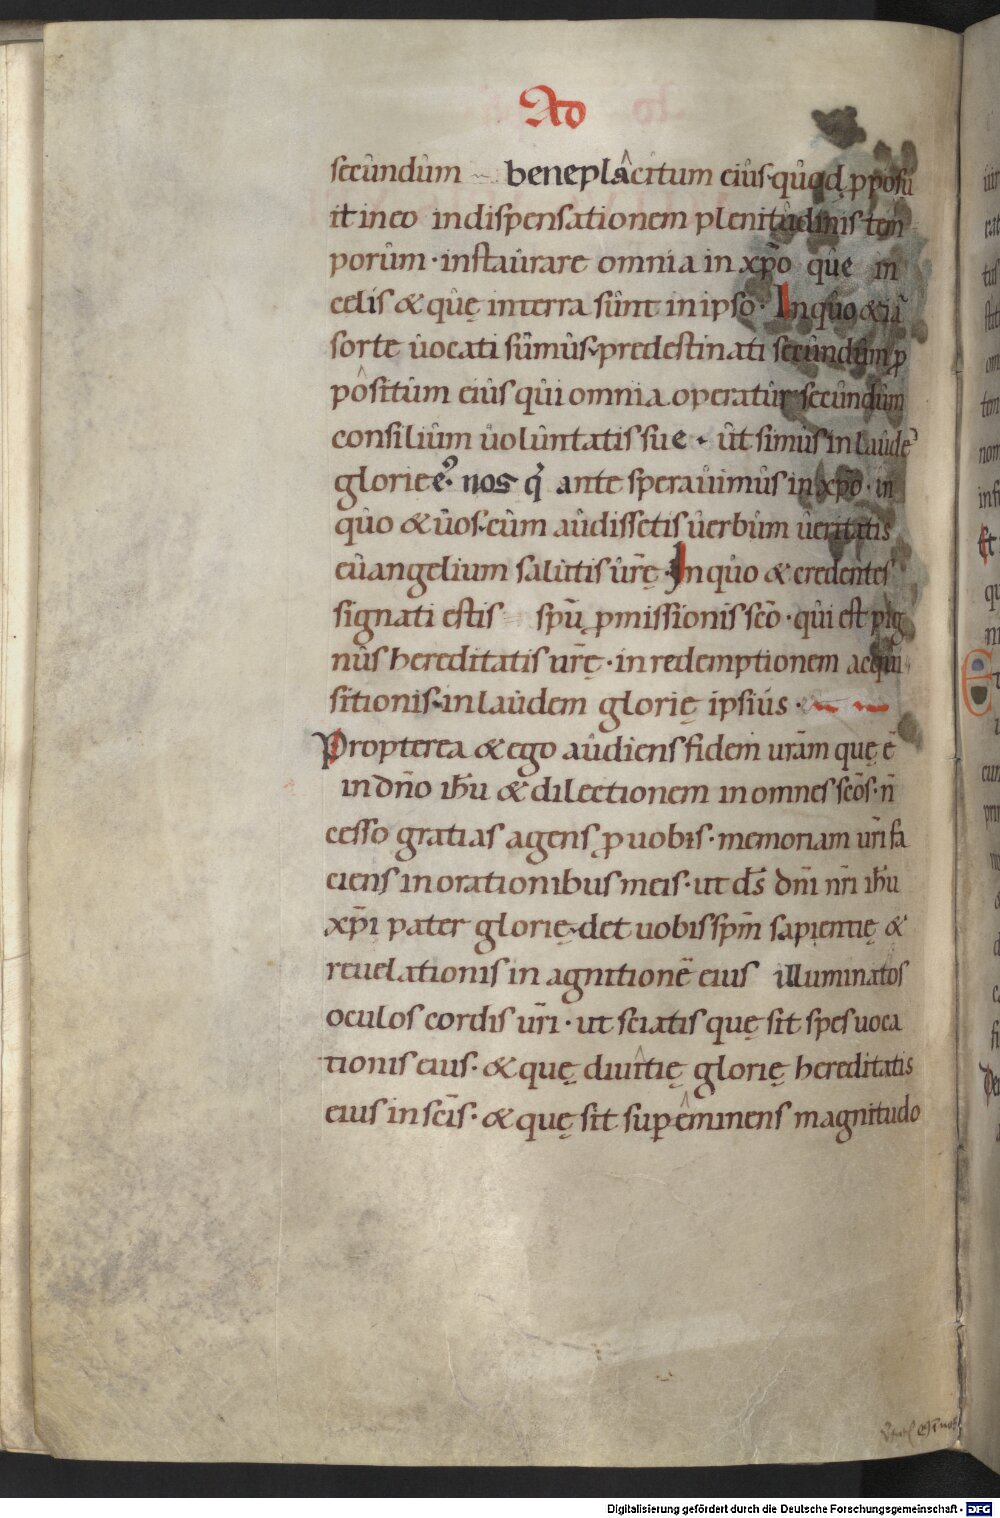 Ad
secundum beneplacitum eius · quod ꝓposu
it in eo in dispensationem plenitudinis tem
porum · instaurare omnia in xp̄o quę in
celis & quę in terra sunt in ipso · In quo & iā
sorte uocati sumus · predestinati secundum ꝓ
positum eius qui omnia operatur secundum
consilium uoluntatis sue · ut simus in laudē
glorie eꝰ · nos q̇ ante sperauimus in xp̄o · in
quo & uos · cum audissetis uerbum ueritatis
euangelium salutis ur̄ę · In quo & credentes
signati estis spū ꝓmissionis sc̄o · qui est pig
nus hereditatis ur̄ę · in redemptionem acqui
sitionis · in laudem glorię ipsius ·
Propterea & ego audiens fidem uram̄ quę ē
in dn̄o ih̄u & dilectionem in omnes sc̄os · n̄
cesso gratias agens ꝓ uobis · memoriam ur̄i fa
ciens in orationibus meis · ut d̄s dn̄i nr̄i ih̄u
xp̄i pater glorię · det uobis spm̄ sapientię &
reuelationis in agnitionē eius illuminatos
oculos cordis ur̄i · ut sciatis quę sit spes uoca
tionis eius · & quę diuitię glorię hereditatis
eius in sc̄is · & quę sit suꝑ eminens magnitudo
Digitalisierung gefördert durch die Deutsche Forschungsgemeinschaft - DFG